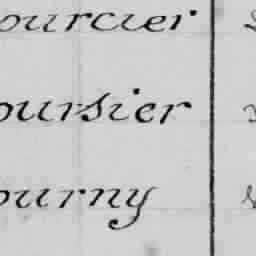 ourcier
oursier
ourny